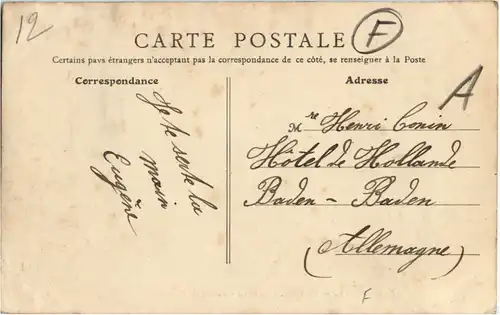 12
CARTE POSTALE
F
Certains pays étrangers n'acceptant pas la correspondance de ce côté, se renseigner à la Poste
Correspondance
Adresse
A
Je te serre la
main
Eugène
Mre Henri Conin
Hôtel de Hollande
Baden - Baden
(Allemagne)
F